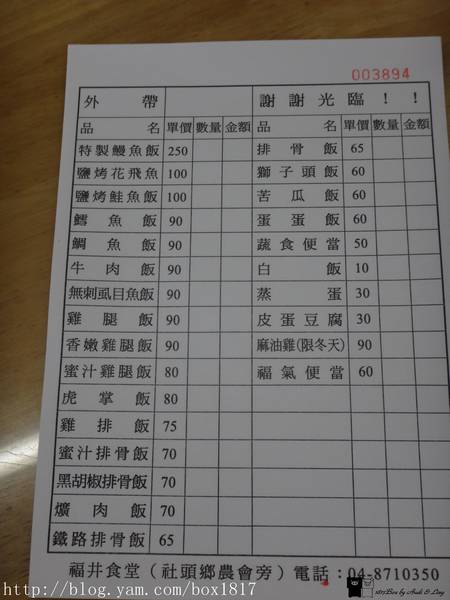 003894
外帶 謝謝光臨！！
品名 單價 數量 金額 品名 單價 數量 金額
特製鰻魚飯 250 排骨飯 65
鹽烤花飛魚 100 獅子頭飯 60
鹽烤鮭魚飯 100 苦瓜飯 60
鱈魚飯 90 蛋蛋飯 60
鯛魚飯 90 蔬食便當 50
牛肉飯 90 白飯 10
無刺虱目魚飯 90 蒸蛋 30
雞腿飯 90 皮蛋豆腐 30
香嫩雞腿飯 90 麻油雞(限冬天) 90
蜜汁雞腿飯 80 福氣便當 60
虎掌飯 80
雞排飯 75
蜜汁排骨飯 70
黑胡椒排骨飯 70
爌肉飯 70
鐵路排骨飯 65
福井食堂（社頭鄉農會旁）電話：04-8710350
http://blog.yam.com/box1817
1817Box by Andi & Ling